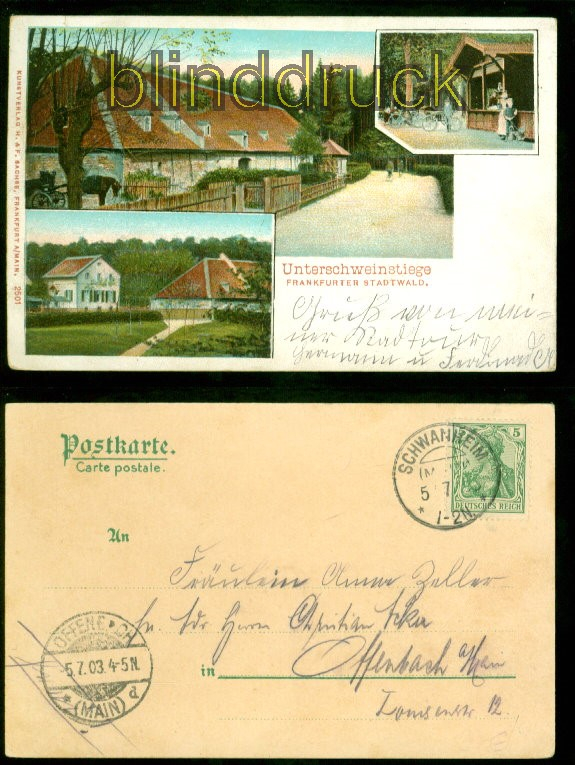 blinddruck
KUNSTVERLAG H. & F. SACHSE, FRANKFURT A/MAIN. 2501
Unterschweinstiege
FRANKFURTER STADTWALD.
Gruß von mei-
ner Radtour
Hermann u
Postkarte.
Carte postale.
SCHWANHEIM
5 7
* 1-2N. *
5
DEUTSCHES REICH
An
Fräulein Anna Zeller
Herrn Christian
in Offenbach a/Main
12.
OFFENBACH
5.7.03.4-5N.
* (MAIN) d